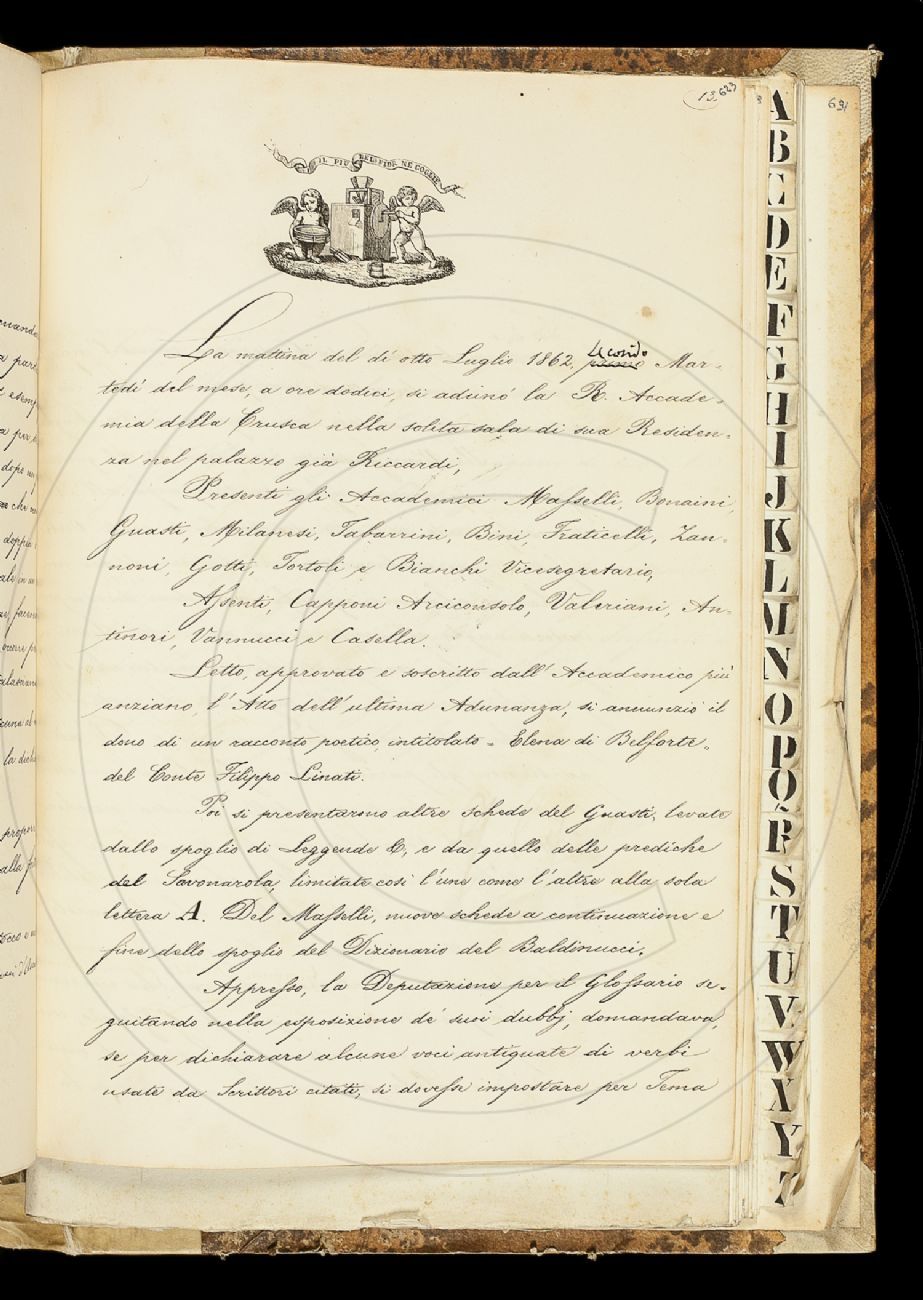 13. 623
IL PIÙ BEL FIOR NE COGLIE
La mattina del dì otto Luglio 1862, primo secondo Mar-
tedì del mese, a ore dodici, si adunò la R. Accade-
mia della Crusca nella solita sala di sua Residen-
za nel palazzo già Riccardi,
Presenti gli Accademici Masselli, Bonaini,
Guasti, Milanesi, Tabarrini, Bini, Fraticelli, Zan-
noni, Gotti, Tortoli e Bianchi Vicesegretario,
Assenti, Capponi Arciconsolo, Valeriani, An-
tinori, Vannucci e Casella.
Letto, approvato e soscritto dall' Accademico più
anziano, l' Atto dell' ultima Adunanza, si annunziò il
dono di un racconto poetico intitolato = Elena di Belforte =
del Conte Filippo Linati.
Poi si presentarono altre schede del Guasti, levate
dallo spoglio di Leggende &, e da quello delle prediche
del Savonarola, limitate così l'une come l'altre alla sola
lettera A. Del Masselli, nuove schede a continuazione e
fine dello spoglio del Dizionario del Baldinucci.
Appresso, la Deputazione per il Glossario se-
guitando nella esposizione de' suoi dubbj, domandava,
se per dichiarare alcune voci antiquate di verbi
usate da Scrittori citati, si dovesse impostare per Tema
A
B
C
D
E
F
G
H
I
J
K
L
M
N
O
P
Q
R
S
T
U
V
W
X
Y
Z